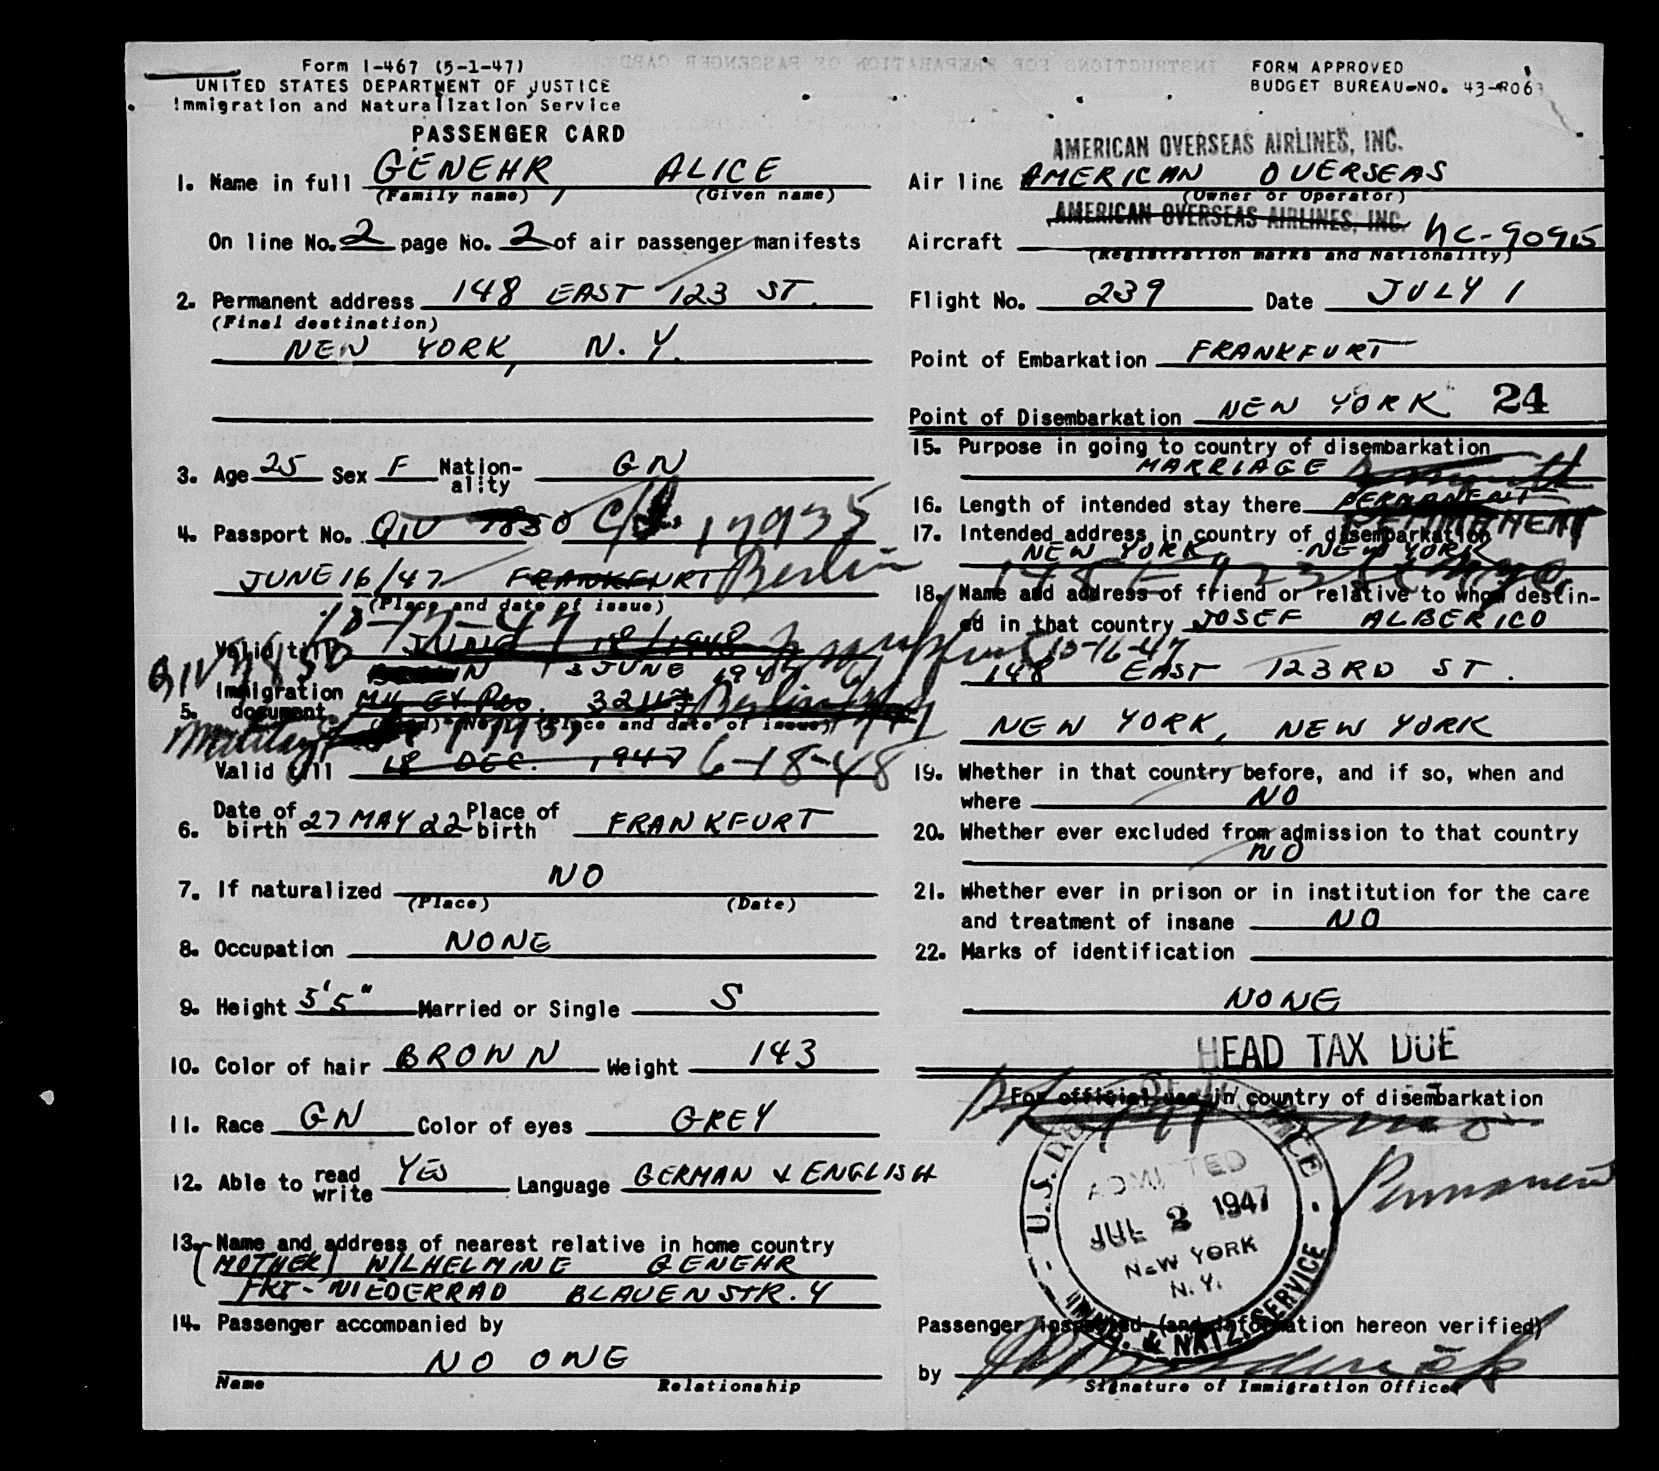 Form I-467 (5-1-47)
UNITED STATES DEPARTMENT OF JUSTICE
Immigration and Naturalization Service
PASSENGER CARD
1. Name in full GENEHR, ALICE
(Family name) (Given name)
On line No. 2 page No. 2 of air passenger manifests
2. Permanent address 148 EAST 123 ST.
(Final destination)
NEW YORK, N.Y.
3. Age 25 Sex F Nation-ality GN
4. Passport No. QIV 7850 17935
JUNE 16/47 FRANKFURT Berlin
(Place and date of issue)
10-17-47
Valid till JUNE 18/1948
QIV 7850 13 JUNE 1947 10-16-47
Immigration
5. document 
(Place and date of issue)
Military
Valid till 18 DEC. 1947 6-18-48
6. Date of birth 27 MAY 22 Place of birth FRANKFURT
7. If naturalized NO
(Place) (Date)
8. Occupation NONE
9. Height 5'5" Married or Single S
10. Color of hair BROWN Weight 143
11. Race GN Color of eyes GREY
12. Able to read write YES Language GERMAN & ENGLISH
13. Name and address of nearest relative in home country
(MOTHER) WILHELMINE GENEHR
FKT-NIEDERRAD BLAUENSTR. 4
14. Passenger accompanied by
NO ONE
Name Relationship
FORM APPROVED
BUDGET BUREAU NO. 43-R063
AMERICAN OVERSEAS AIRLINES, INC.
Air line AMERICAN OVERSEAS
(Owner or Operator)
AMERICAN OVERSEAS AIRLINES, INC.
Aircraft NC-90915
(Registration marks and Nationality)
Flight No. 239 Date JULY 1
Point of Embarkation FRANKFURT
Point of Disembarkation NEW YORK 24
15. Purpose in going to country of disembarkation
MARRIAGE
16. Length of intended stay there PERMANENT
PERMANENT
17. Intended address in country of disembarkation
NEW YORK, NEW YORK
148 E 123
18. Name and address of friend or relative to whom destin-
ed in that country JOSEF ALBERICO
148 EAST 123RD ST.
NEW YORK, NEW YORK
19. Whether in that country before, and if so, when and
where NO
20. Whether ever excluded from admission to that country
NO
21. Whether ever in prison or in institution for the care
and treatment of insane NO
22. Marks of identification
NONE
HEAD TAX DUE
For official use in country of disembarkation
Permanent
U.S. DEPT. OF JUSTICE - IMM. & NATZ. SERVICE -
ADMITTED
JUL 2 1947
NEW YORK
N.Y.
Passenger inspected (and information hereon verified)
by
Signature of Immigration Officer